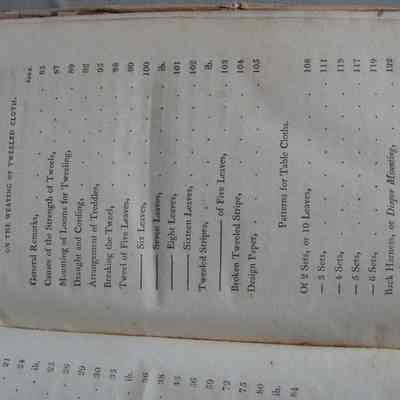 ON THE WEAVING OF TWEELED CLOTH.
PAGE.
General Remarks, 85
Causes of the Strength of Tweels, 87
Mounting of Looms for Tweeling, 89
Draught and Cording, 92
Arrangement of Treddles, 95
Breaking the Tweel, 98
Tweel of Five Leaves, 99
—— Six Leaves, 100
—— Seven Leaves, ib.
—— Eight Leaves, 101
—— Sixteen Leaves, 102
Tweeled Stripes, ib.
—— of Five Leaves, 103
Broken Tweeled Stripe, 104
Design Paper, 105
Patterns for Table Cloths.
Of 2 Sets, or 10 Leaves, 108
— 3 Sets, 111
— 4 Sets, 115
— 5 Sets, 117
— 6 Sets, 119
Back Harness, or Diaper Mounting, 122
21
24
ib.
25
26
29
30
35
ib.
36
38
45
56
59
72
75
80
ib.
84